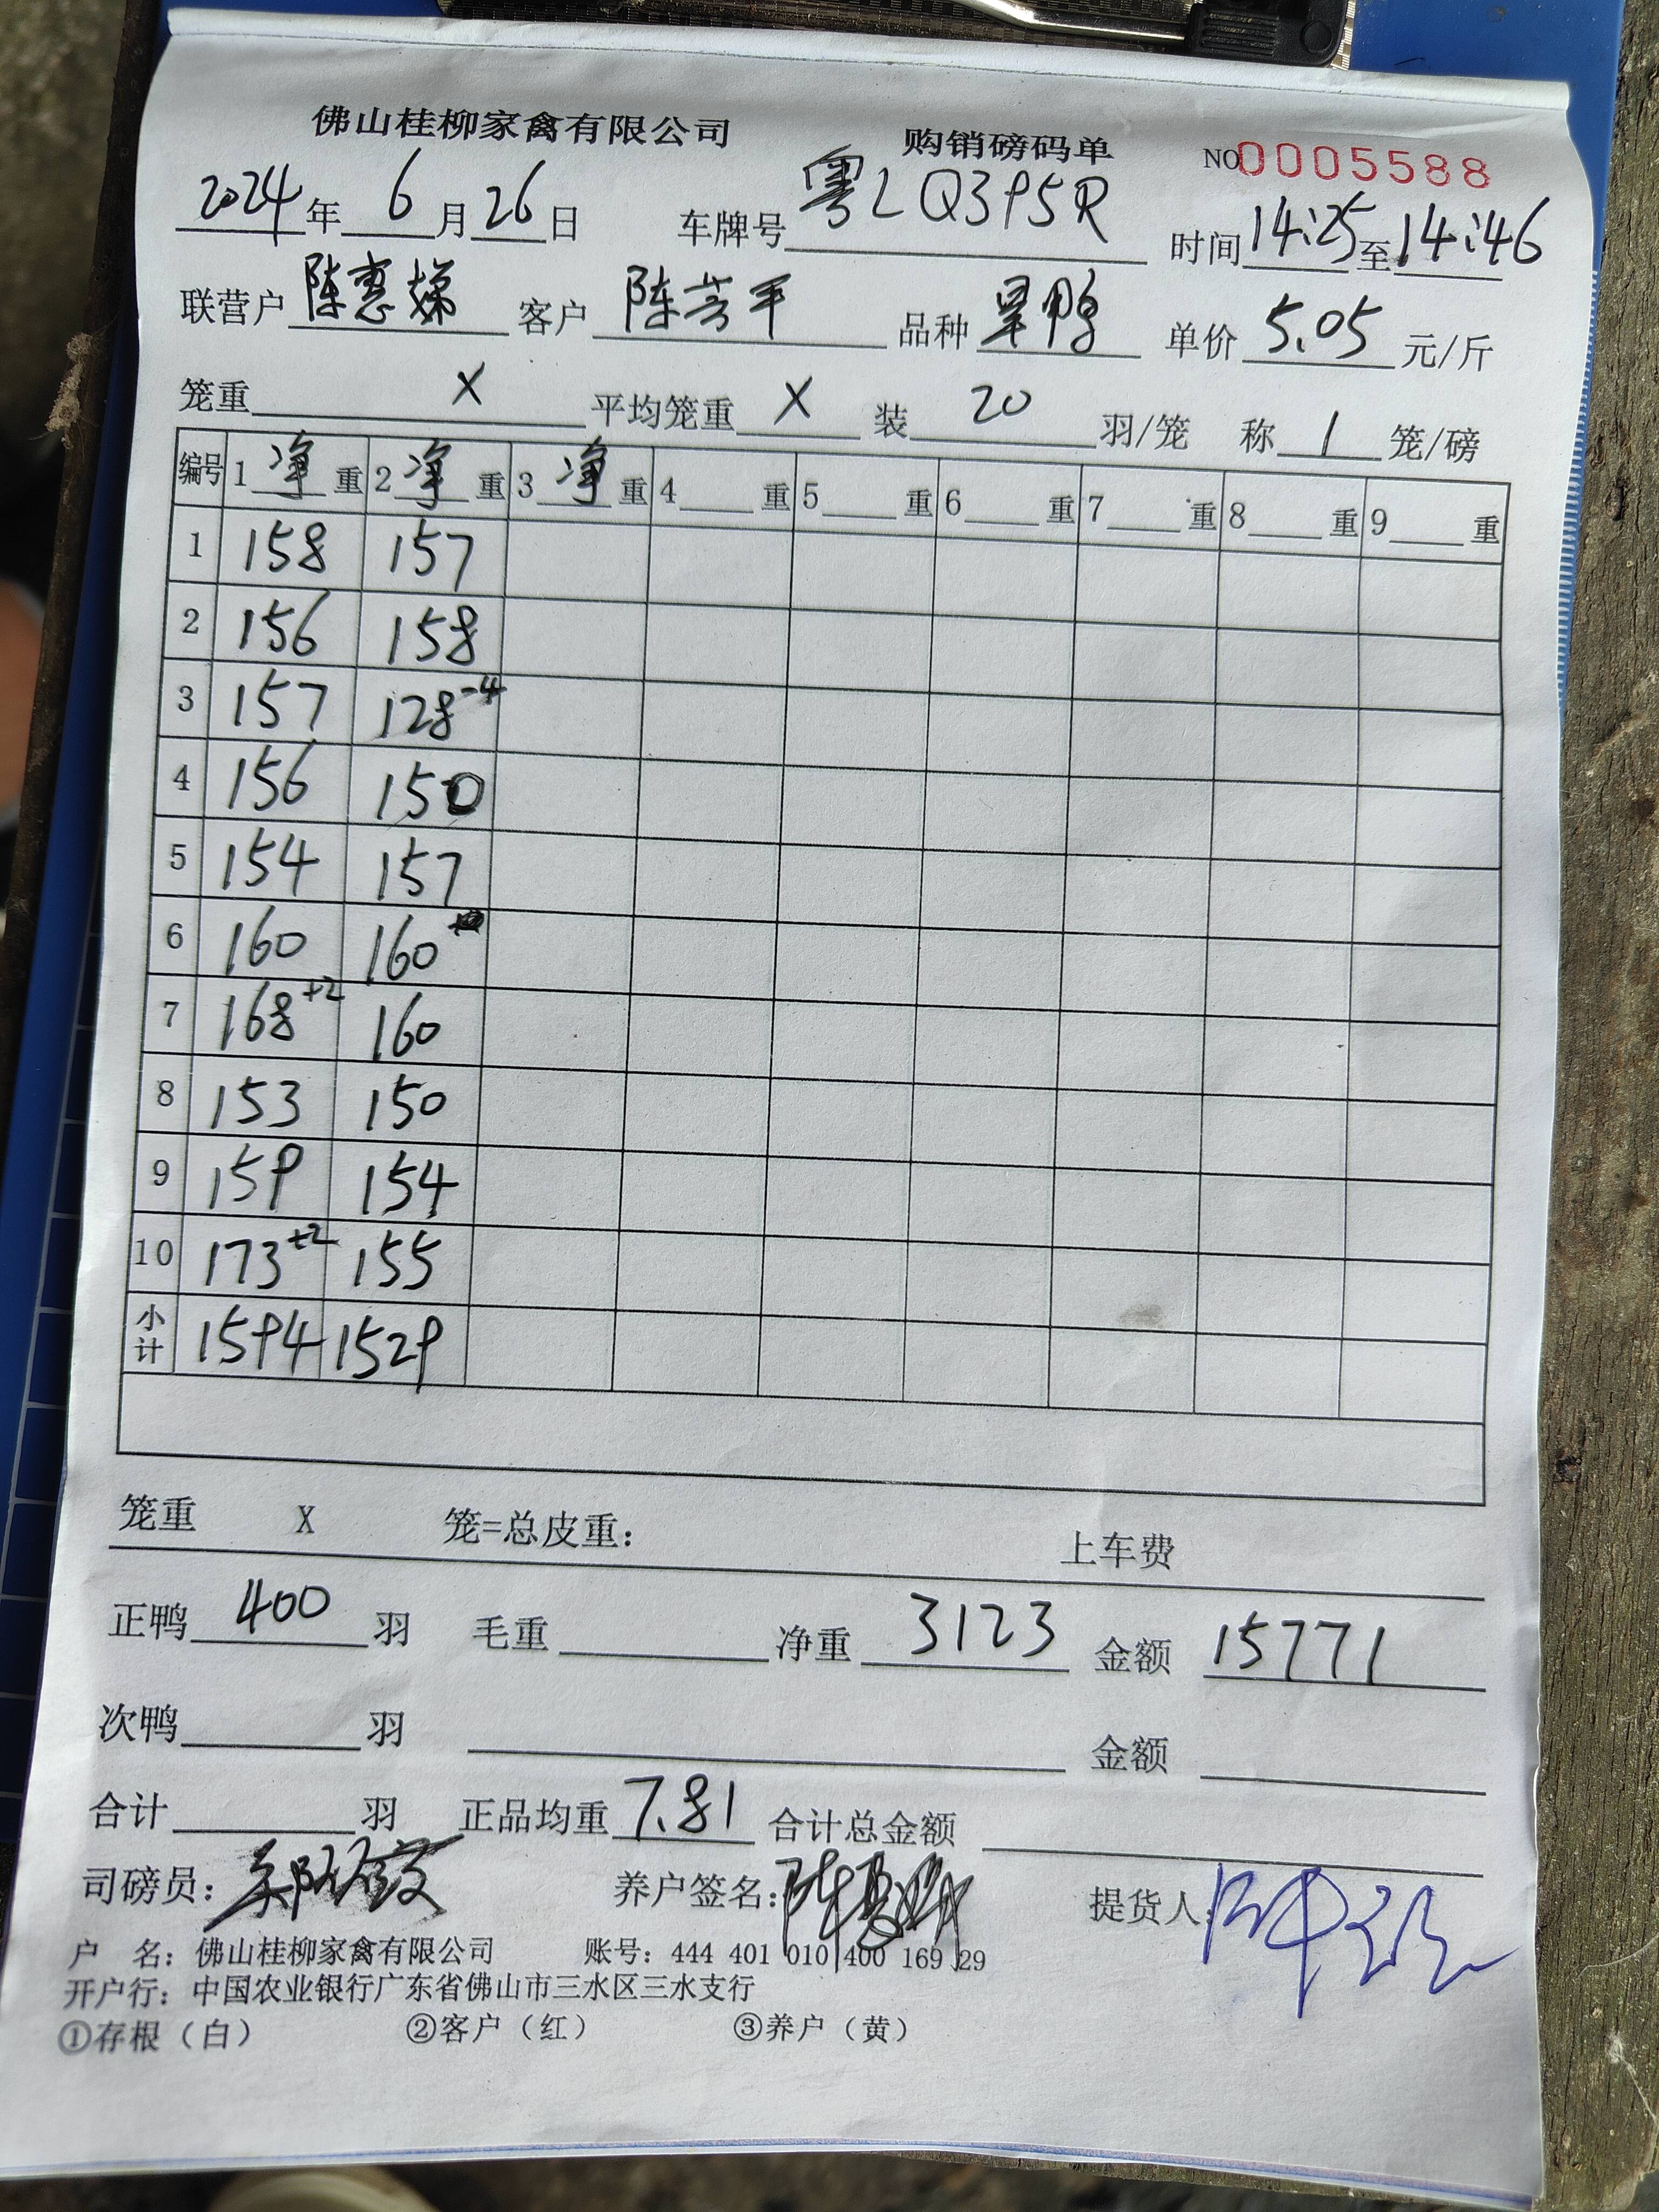 佛山桂柳家禽有限公司 购销磅码单 NO 0005588
2024年6月26日 车牌号 粤LQ395R 时间 14:25至14:46
联营户 陈惠娣 客户 陈芳平 品种 旱鸭 单价 5.05 元/斤
笼重 X 平均笼重 X 装 20 羽/笼 称 1 笼/磅
编号 1 净 重 2 净 重 3 净 重 4 重 5 重 6 重 7 重 8 重 9 重
1 158 157
2 156 158
3 157 128-4
4 156 150
5 154 157
6 160 160
7 168+2 160
8 153 150
9 159 154
10 173+2 155
小计 1594 1529
笼重 X 笼=总皮重: 上车费
正鸭 400 羽 毛重 净重 3123 金额 15771
次鸭 羽 金额
合计 羽 正品均重 7.81 合计总金额
司磅员: 养户签名: 提货人:
户 名: 佛山桂柳家禽有限公司 账号: 444 401 010 400 169 29
开户行: 中国农业银行广东省佛山市三水区三水支行
①存根（白） ②客户（红） ③养户（黄）